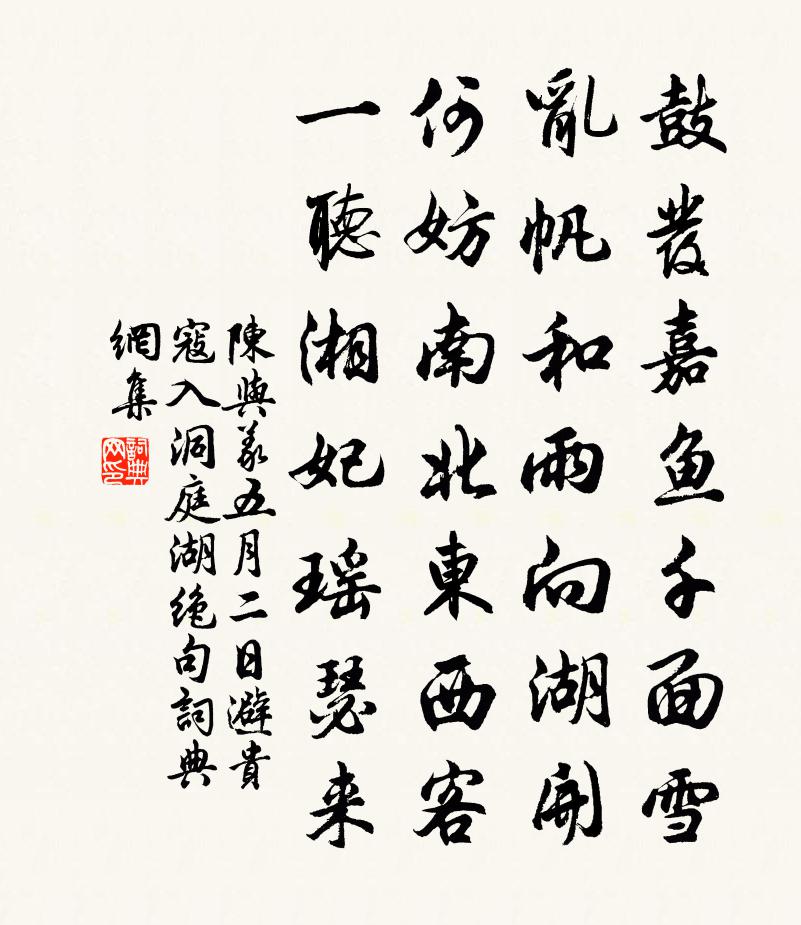 鼓發嘉魚千面雷
亂帆和雨向湖開
何妨南北東西客
一聽湘妃瑶瑟来
陳與義五月二日避貴
寇入洞庭湖絶句詞典
網集
詞典网印